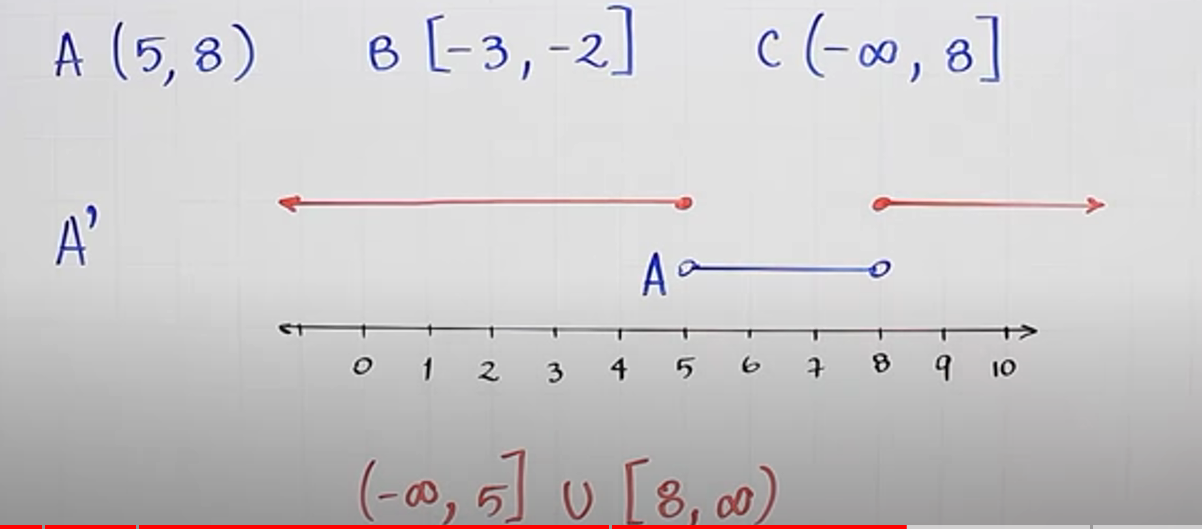 A (5, 8) B [-3, -2] C (-∞, 8]
A'
A
0 1 2 3 4 5 6 7 8 9 10
(-∞, 5] ∪ [8, ∞)